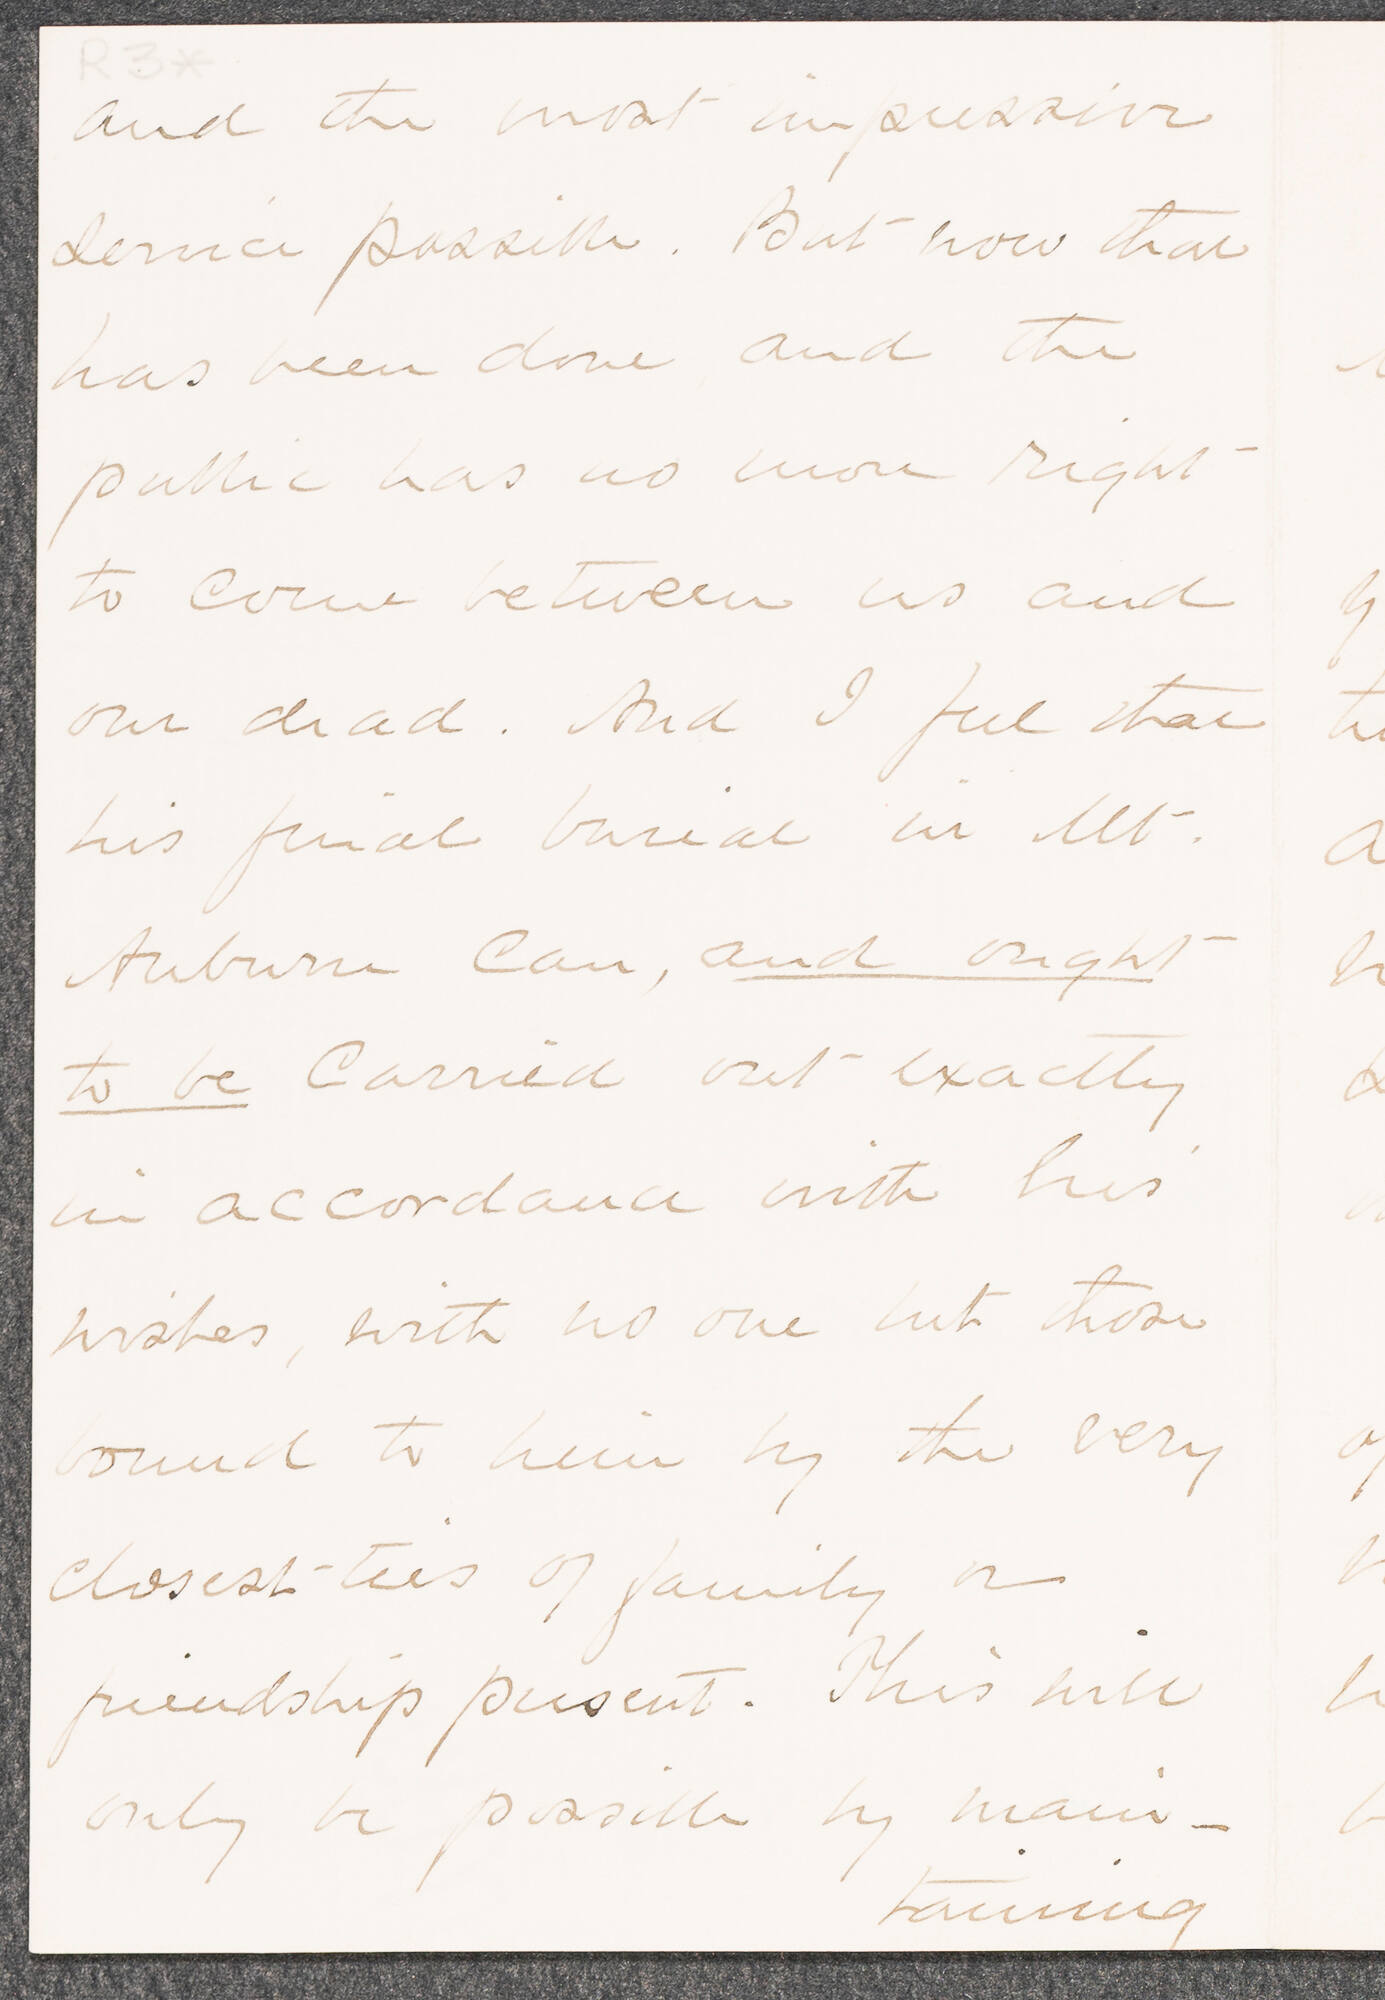 R3*
and the most impressive
service possible. But now that
has been done, and the
public has no more right
to come between us and
our dead. And I feel that
his final burial in Mt.
Auburn can, and ought
to be carried out exactly
in accordance with his
wishes, with no one but those
bound to him by the very
closest ties of family or
friendship present. This will
only be possible by main-
taining